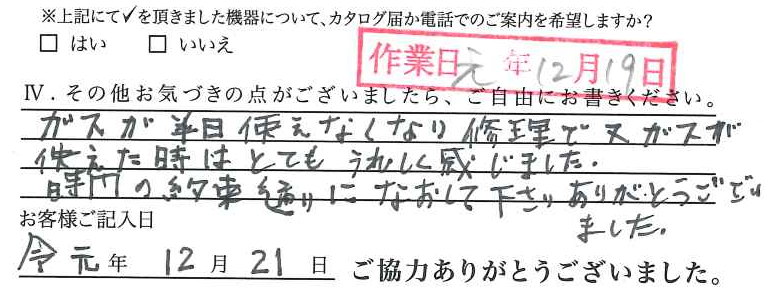 ※上記にて✓を頂きました機器について、カタログ届か電話でのご案内を希望しますか?
□ はい □ いいえ
作業日 元年12月19日
Ⅳ．その他お気づきの点がございましたら、ご自由にお書きください。
ガスが半日使えなくなり修理で又ガスが
使えた時はとてもうれしく感じました.
時間の約束通りになおして下さりありがとうござい
ました.
お客様ご記入日
令元年 12月 21日 ご協力ありがとうございました。